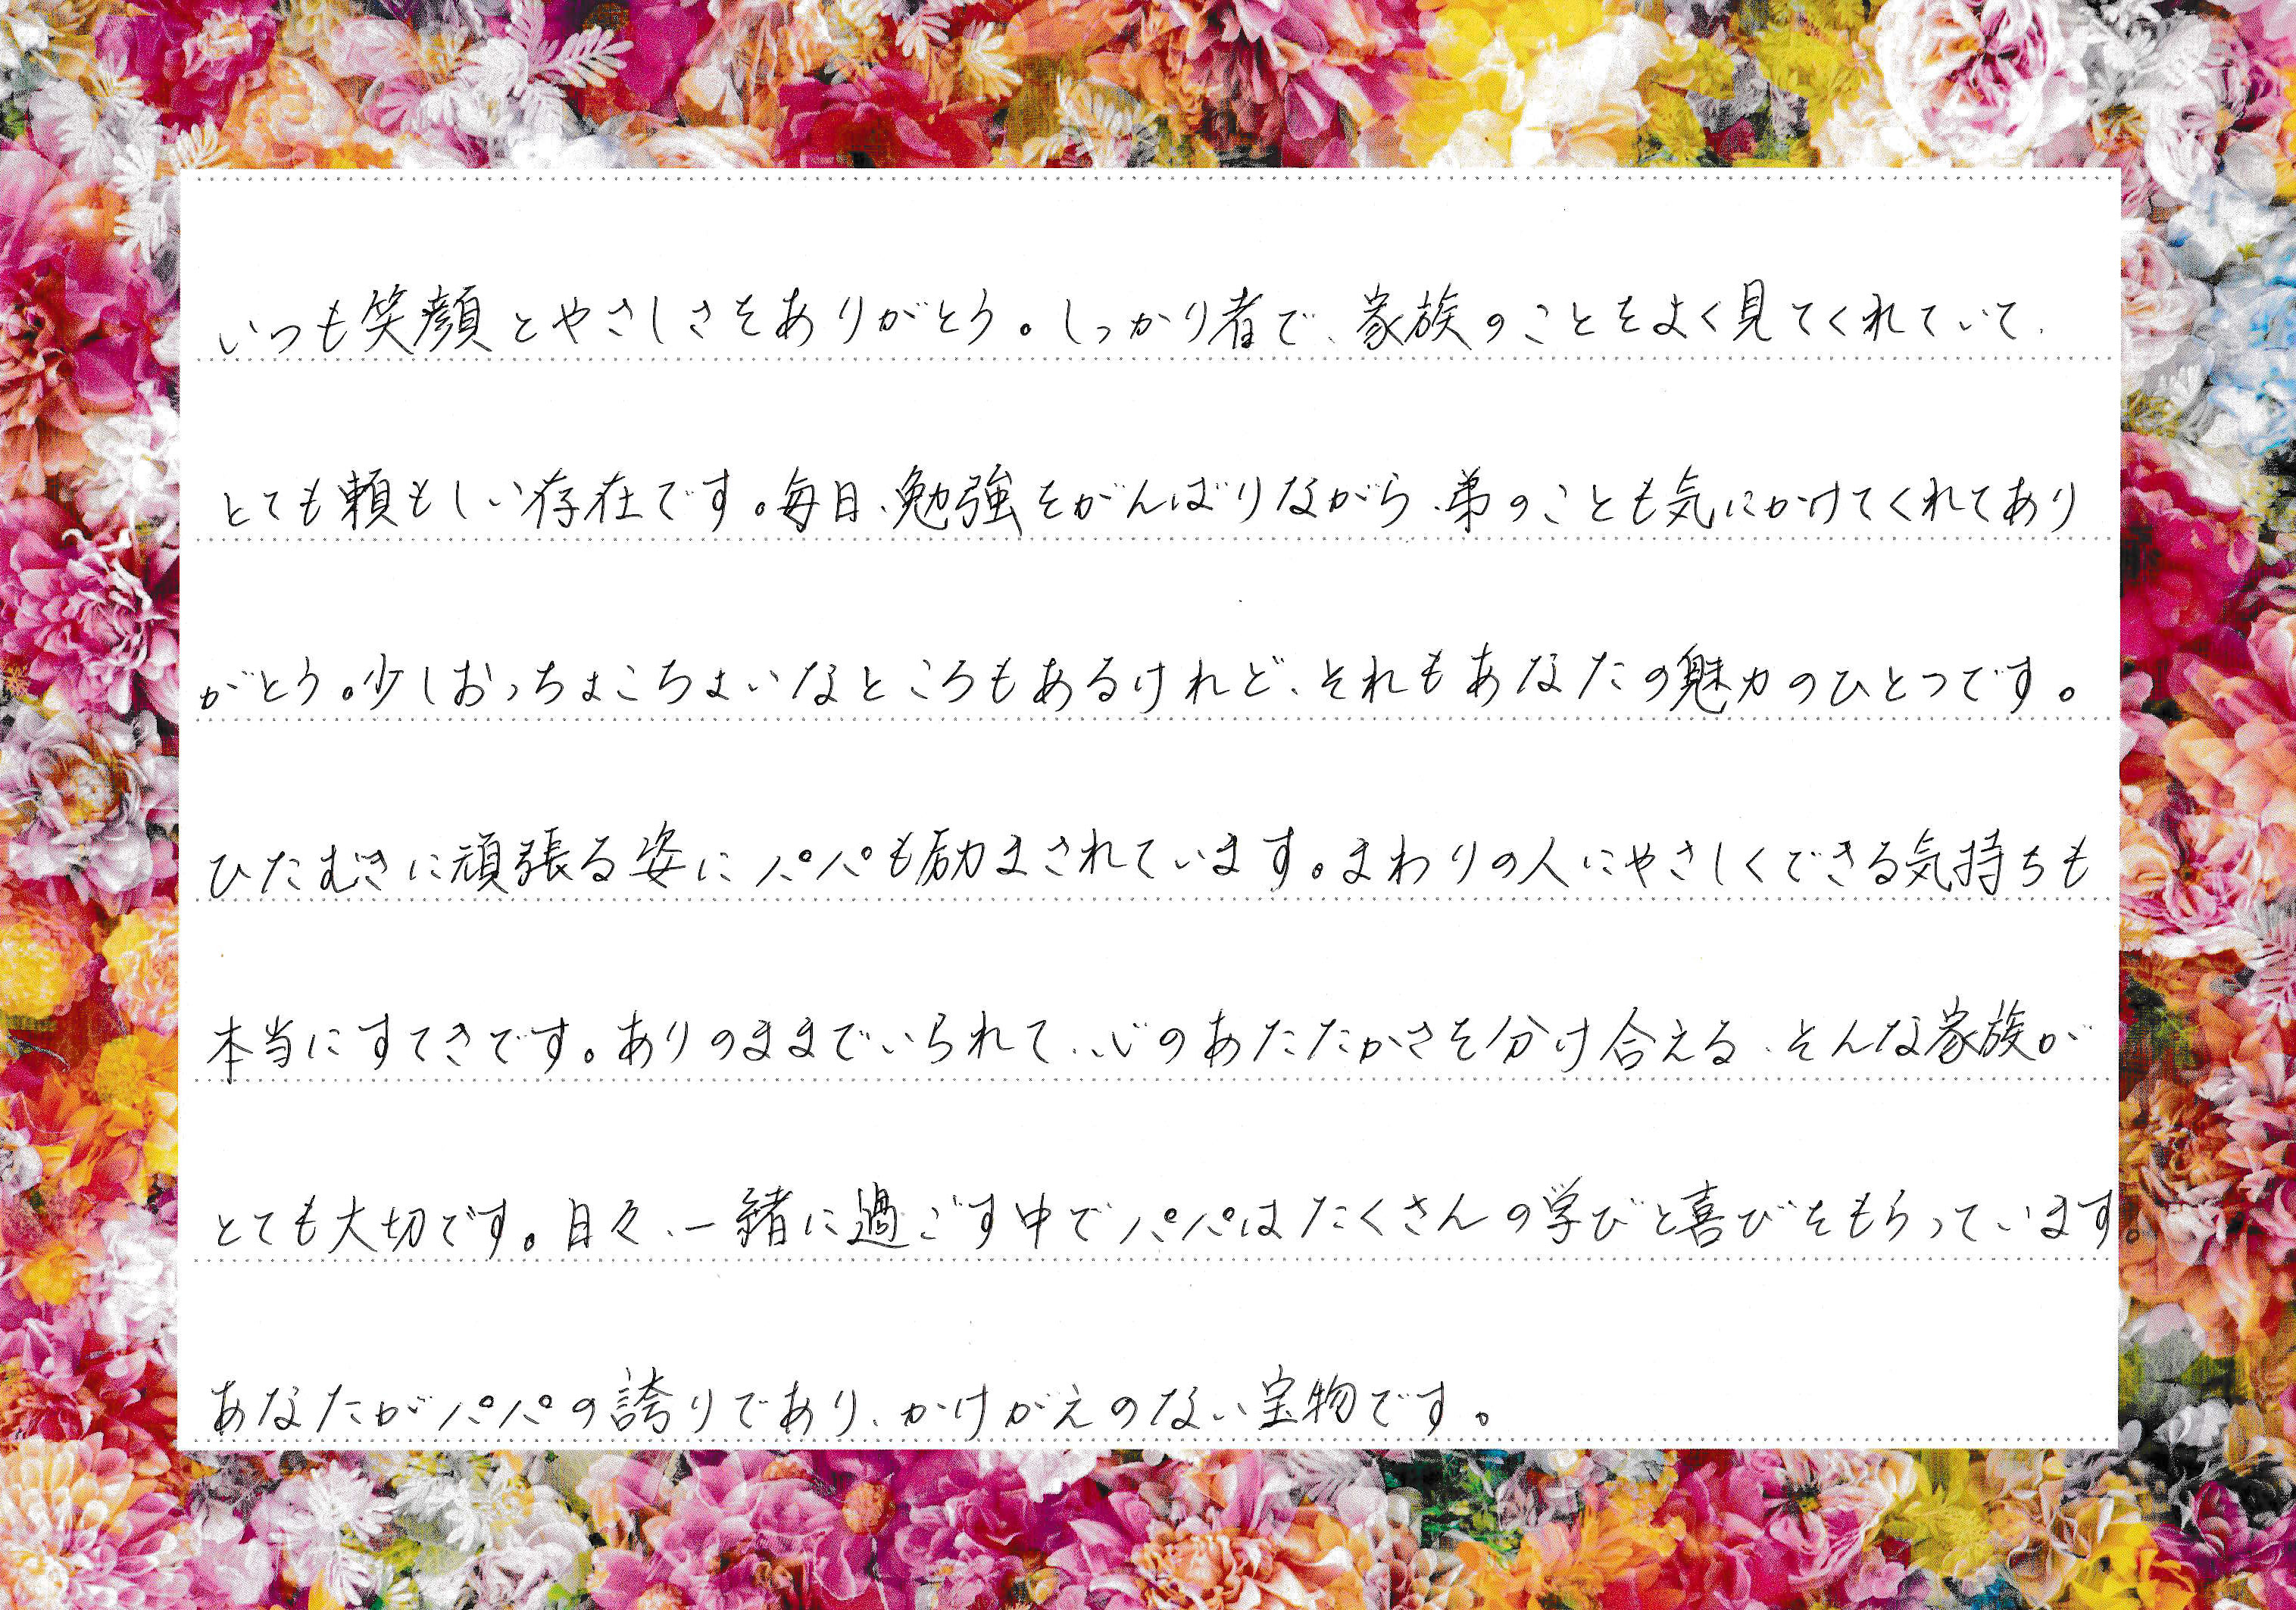 いつも笑顔とやさしさをありがとう。しっかり者で、家族のことをよく見てくれていて、
とても頼もしい存在です。毎日、勉強をがんばりながら、弟のことも気にかけてくれてあり
がとう。少しおっちょこちょいなところもあるけれど、それもあなたの魅力のひとつです。
ひたむきに頑張る姿にパパも励まされています。まわりの人にやさしくできる気持ちも
本当にすてきです。ありのままでいられて、心のあたたかさを分け合える、そんな家族が
とても大切です。日々、一緒に過ごす中でパパはたくさんの学びと喜びをもらっています。
あなたがパパの誇りであり、かけがえのない宝物です。